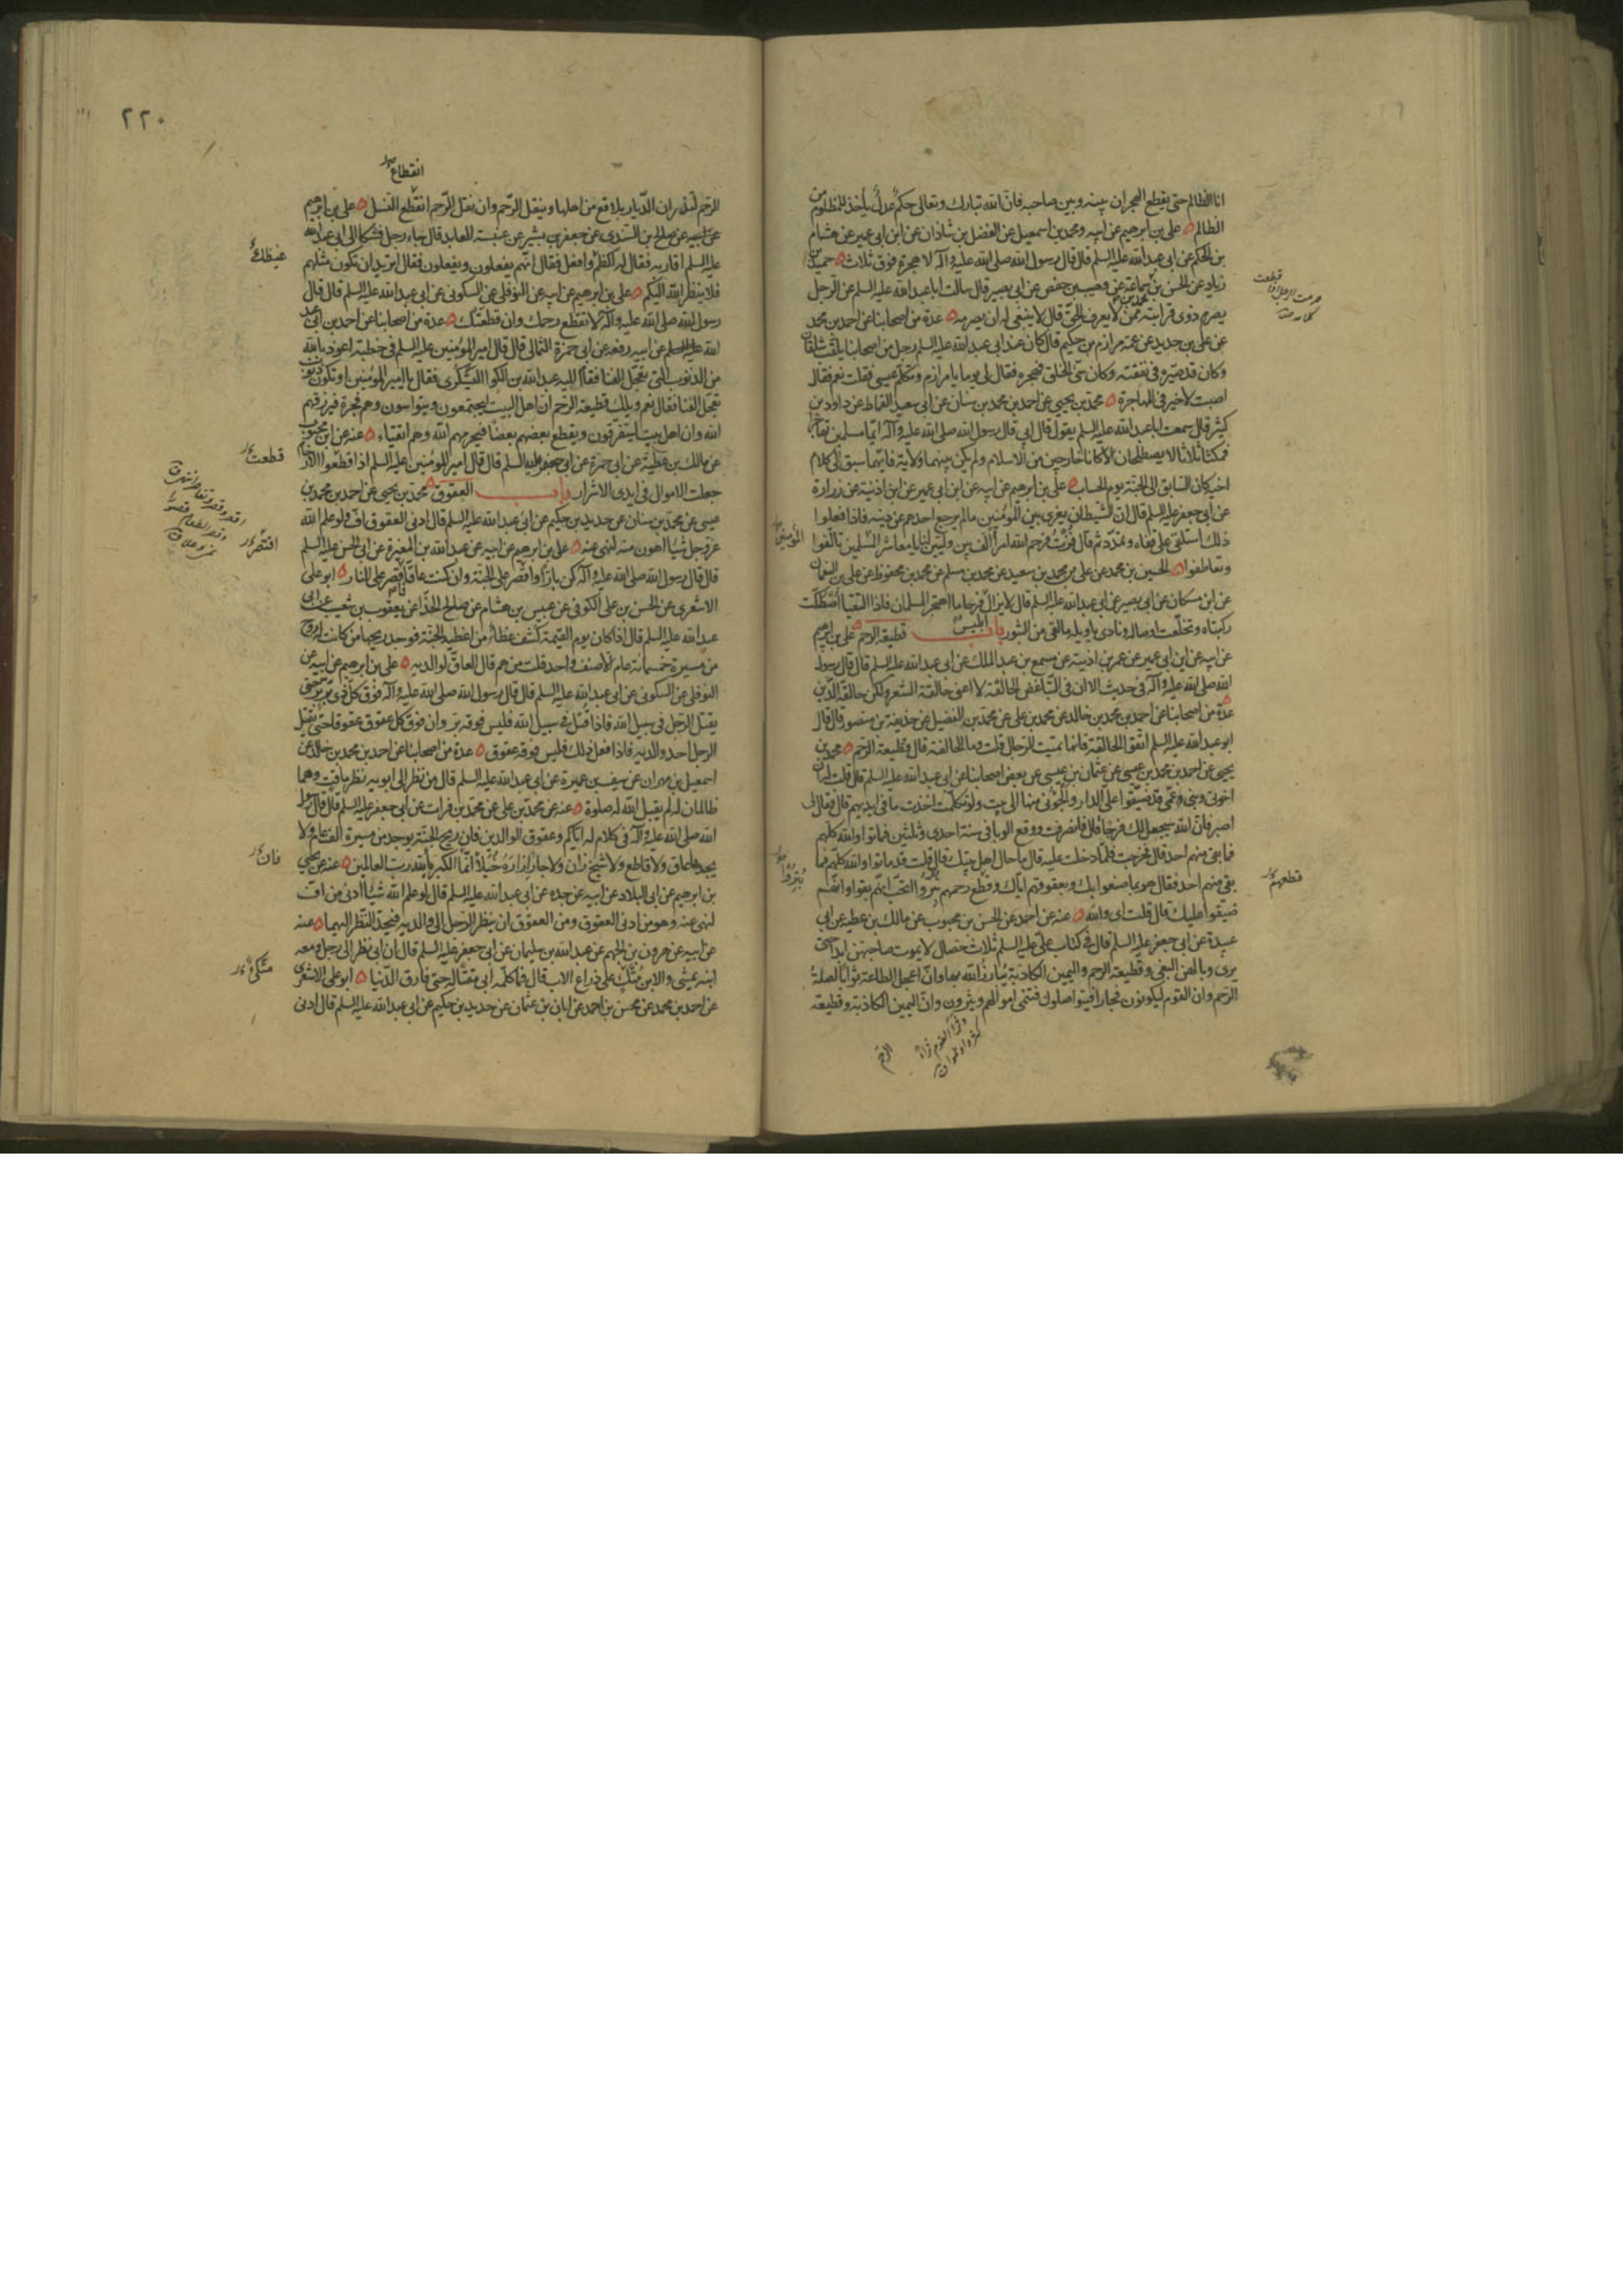 انا الظالم حتى يقطع الهجران بينه وبين صاحبه فان الله تبارك وتعالى حكم عدل يأخذ للمظلوم من
الظالم علي بن ابرهيم عن ابيه ومحمد بن اسمعيل عن الفضل بن شاذان عن ابن ابي عمير عن هشام
بن الحكم عن ابي عبد الله عليه السلم قال قال رسول الله صلى الله عليه وآله لا هجرة فوق ثلاث حميد بن
زياد عن الحسن بن محمد بن سماعة عن وهيب بن حفص عن ابي بصير قال سالت ابا عبد الله عليه السلم عن الرجل
يصرم ذوى قرابته ممن لا يعرف الحق قال لا ينبغى له ان يصرمه عدة من اصحابنا عن احمد بن محمد
عن علي بن حديد عن عمه مرازم بن حكيم قال كان عند ابي عبد الله عليه السلم رجل من اصحابنا يلقب شلقان
وكان قد صيره في نفقته وكان سيئ الخلق فهجره فقال لى يوما يا مرازم وتكلم عيسى فقلت نعم فقال
اصبت لا خير في المهاجرة محمد بن يحيى عن احمد بن محمد بن سنان عن ابي سعيد القماط عن داود بن
كثير قال سمعت ابا عبد الله عليه السلم يقول قال ابي قال رسول الله صلى الله عليه وآله ايما مسلمين تهاجرا
فمكثا ثلاثا لا يصطلحان الا كانا خارجين من الاسلام ولم يكن بينهما ولاية فايهما سبق الى كلام
اخيه كان السابق الى الجنة يوم الحساب علي بن ابرهيم عن ابيه عن ابن ابي عمير عن ابن اذينة عن زرارة
عن ابي جعفر عليه السلم قال ان الشيطان يغرى بين المؤمنين مالم يرجع احدهم عن دينه فاذا فعلوا
ذلك استلقى على قفاه وتمدد ثم قال فزت فرحم الله امرأ الف بين وليين لنا يا معاشر المسلمين تألفوا
المؤمنين
وتعاطفوا الحسين بن محمد عن علي بن محمد بن سعيد عن محمد بن مسلم عن محمد بن محفوظ عن علي بن النعمان
عن ابن مسكان عن ابي بصير عن ابي عبد الله عليه السلم قال لا يزال فرحا ما اهتجر المسلمان فاذا التقيا اصطكت
ابليس
ركبتاه وتخلعت اوصاله ونادى يا ويله ما لقى من الثبور باب قطيعة الرحم علي بن ابرهيم
عن ابيه عن ابن ابي عمير عن عمر بن اذينة عن مسمع بن عبد الملك عن ابي عبد الله عليه السلم قال قال رسول
الله صلى الله عليه وآله في حديث الا ان في التباغض الحالقة لا اعنى حالقة الشعر ولكن حالقة الدين
عدة من اصحابنا عن احمد بن محمد بن خالد عن محمد بن علي عن محمد بن الفضيل عن حذيفة بن منصور قال قال
ابو عبد الله عليه السلم اتقوا الحالقة فانها تميت الرجال قلت وما الحالقة قال قطيعة الرحم محمد بن
يحيى عن احمد بن محمد بن عيسى عن عثمان بن عيسى عن بعض اصحابنا عن ابي عبد الله عليه السلم قال قلت له ان
اخوتى وبنى عمى قد ضيقوا على الدار والجؤنى منها الى بيت ولو تكلمت اخذت ما في ايديهم قال فقال لى
اصبر فان الله سيجعل لك فرجا قال فانصرفت ووقع الوبا في سنة احدى وثلثين فماتوا والله كلهم
فما بقى منهم احد قال فخرجت فلما دخلت عليه قال ما حال اهل بيتك قال قلت قد ماتوا والله كلهم فما
بقى منهم احد فقال هو بما صنعوا بك وبعقوقهم اياك وقطع رحمهم بتروا اتحب انهم بقوا وانهم
قطعهم
ضيقوا عليك قال قلت اى والله عنه عن احمد عن الحسن بن محبوب عن مالك بن عطيه عن ابي
عبيدة عن ابي جعفر عليه السلم قال في كتاب علي عليه السلم ثلاث خصال لا يموت صاحبهن ابدا حتى
يرى وبالهن البغى وقطيعة الرحم واليمين الكاذبة يبارز الله بها وان اعجل الطاعة ثوابا لصلة
الرحم وان القوم ليكونون فجارا فيتواصلون فتنمى اموالهم ويثرون وان اليمين الكاذبة وقطيعة
الرحم
٢٢٠
انقطاع
الرحم لتذران الديار بلاقع من اهلها وينقل الرحم وان نقل الرحم انقطع النسل علي بن ابرهيم
عن ابيه عن صالح بن السندى عن جعفر بن بشير عن عنبسة العابد قال جاء رجل فشكا الى ابي عبد الله
عليه السلم اقاربه فقال له اكظم وافعل فقال انهم يفعلون ويفعلون فقال اتريد ان تكون مثلهم
فلا ينظر الله اليكم علي بن ابرهيم عن ابيه عن النوفلى عن السكونى عن ابي عبد الله عليه السلم قال قال
رسول الله صلى الله عليه وآله لا تقطع رحمك وان قطعتك عدة من اصحابنا عن احمد بن ابي عبد
الله عن ابيه رفعه عن ابي حمزة الثمالى قال قال امير المؤمنين عليه السلم في خطبة اعوذ بالله
من الذنوب التى تعجل الفنا فقام اليه عبد الله بن الكوا اليشكرى فقال يا امير المؤمنين او تكون ذنوب
تعجل الفنا فقال نعم ويلك قطيعة الرحم ان اهل البيت ليجتمعون ويتواسون وهم فجرة فيرزقهم
الله وان اهل بيت ليتفرقون ويقطع بعضهم بعضا فيحرمهم الله وهم اتقياء عنه عن ابن محبوب
قطعت
عن مالك بن عطية عن ابي حمزة عن ابي جعفر عليه السلم قال قال امير المؤمنين عليه السلم اذا قطعوا الارحام
جعلت الاموال في ايدى الاشرار باب العقوق محمد بن يحيى عن احمد بن محمد بن
عيسى عن محمد بن سنان عن حديد بن حكيم عن ابي عبد الله عليه السلم قال ادنى العقوق اف ولو علم الله
عز وجل شيئا اهون منه لنهى عنه علي بن ابرهيم عن ابيه عن عبد الله بن المغيرة عن ابي الحسن عليه السلم
قال قال رسول الله صلى الله عليه وآله كن بارا واقصر على الجنة وان كنت عاقا فاقصر على النار ابو علي
الاشعرى عن الحسن بن علي الكوفى عن عبيس بن هشام عن صالح الحذا عن يعقوب بن شعيب عن ابي
عبد الله عليه السلم قال اذا كان يوم القيمة كشف غطاء من اغطية الجنة فوجد ريحها من كانت له روح
من مسيرة خمسمائة عام الا صنف واحد قلت من هم قال العاق لوالديه علي بن ابرهيم عن ابيه عن
النوفلى عن السكونى عن ابي عبد الله عليه السلم قال قال رسول الله صلى الله عليه وآله فوق كل ذى بر بر حتى
يقتل الرجل في سبيل الله فاذا قتل في سبيل الله فليس فوقه بر وان فوق كل عقوق عقوقا حتى يقتل
الرجل احد والديه فاذا فعل ذلك فليس فوقه عقوق عدة من اصحابنا عن احمد بن محمد بن خالد عن
اسمعيل بن مهران عن سيف بن عميرة عن ابي عبد الله عليه السلم قال من نظر الى ابويه نظر ماقت وهما
ظالمان له لم يقبل الله له صلوة عنه عن محمد بن علي عن محمد بن فرات عن ابي جعفر عليه السلم قال قال رسول
الله صلى الله عليه وآله في كلام له اياكم وعقوق الوالدين فان ريح الجنة يوجد من مسيرة الف عام ولا
فان
يجدها عاق ولا قاطع ولا شيخ زان ولا جار ازاره خيلاء انما الكبر يا لله رب العالمين عنه عن يحيى
بن ابرهيم عن ابي البلاد عن ابيه عن جده عن ابي عبد الله عليه السلم قال لو علم الله شيئا ادنى من اف
لنهى عنه وهو من ادنى العقوق ومن العقوق ان ينظر الرجل الى والديه فيحد النظر اليهما عنه
عن ابيه عن هرون بن الجهم عن عبد الله بن سليمان عن ابي جعفر عليه السلم قال ان ابي نظر الى رجل ومعه
متكئ
ابنه يمشى والابن متك على ذراع الاب قال فما كلمه ابي مقتا له حتى فارق الدنيا ابو علي الاشعرى
عن احمد بن محمد عن محسن بن احمد عن ابان بن عثمان عن حديد بن حكيم عن ابي عبد الله عليه السلم قال ادنى